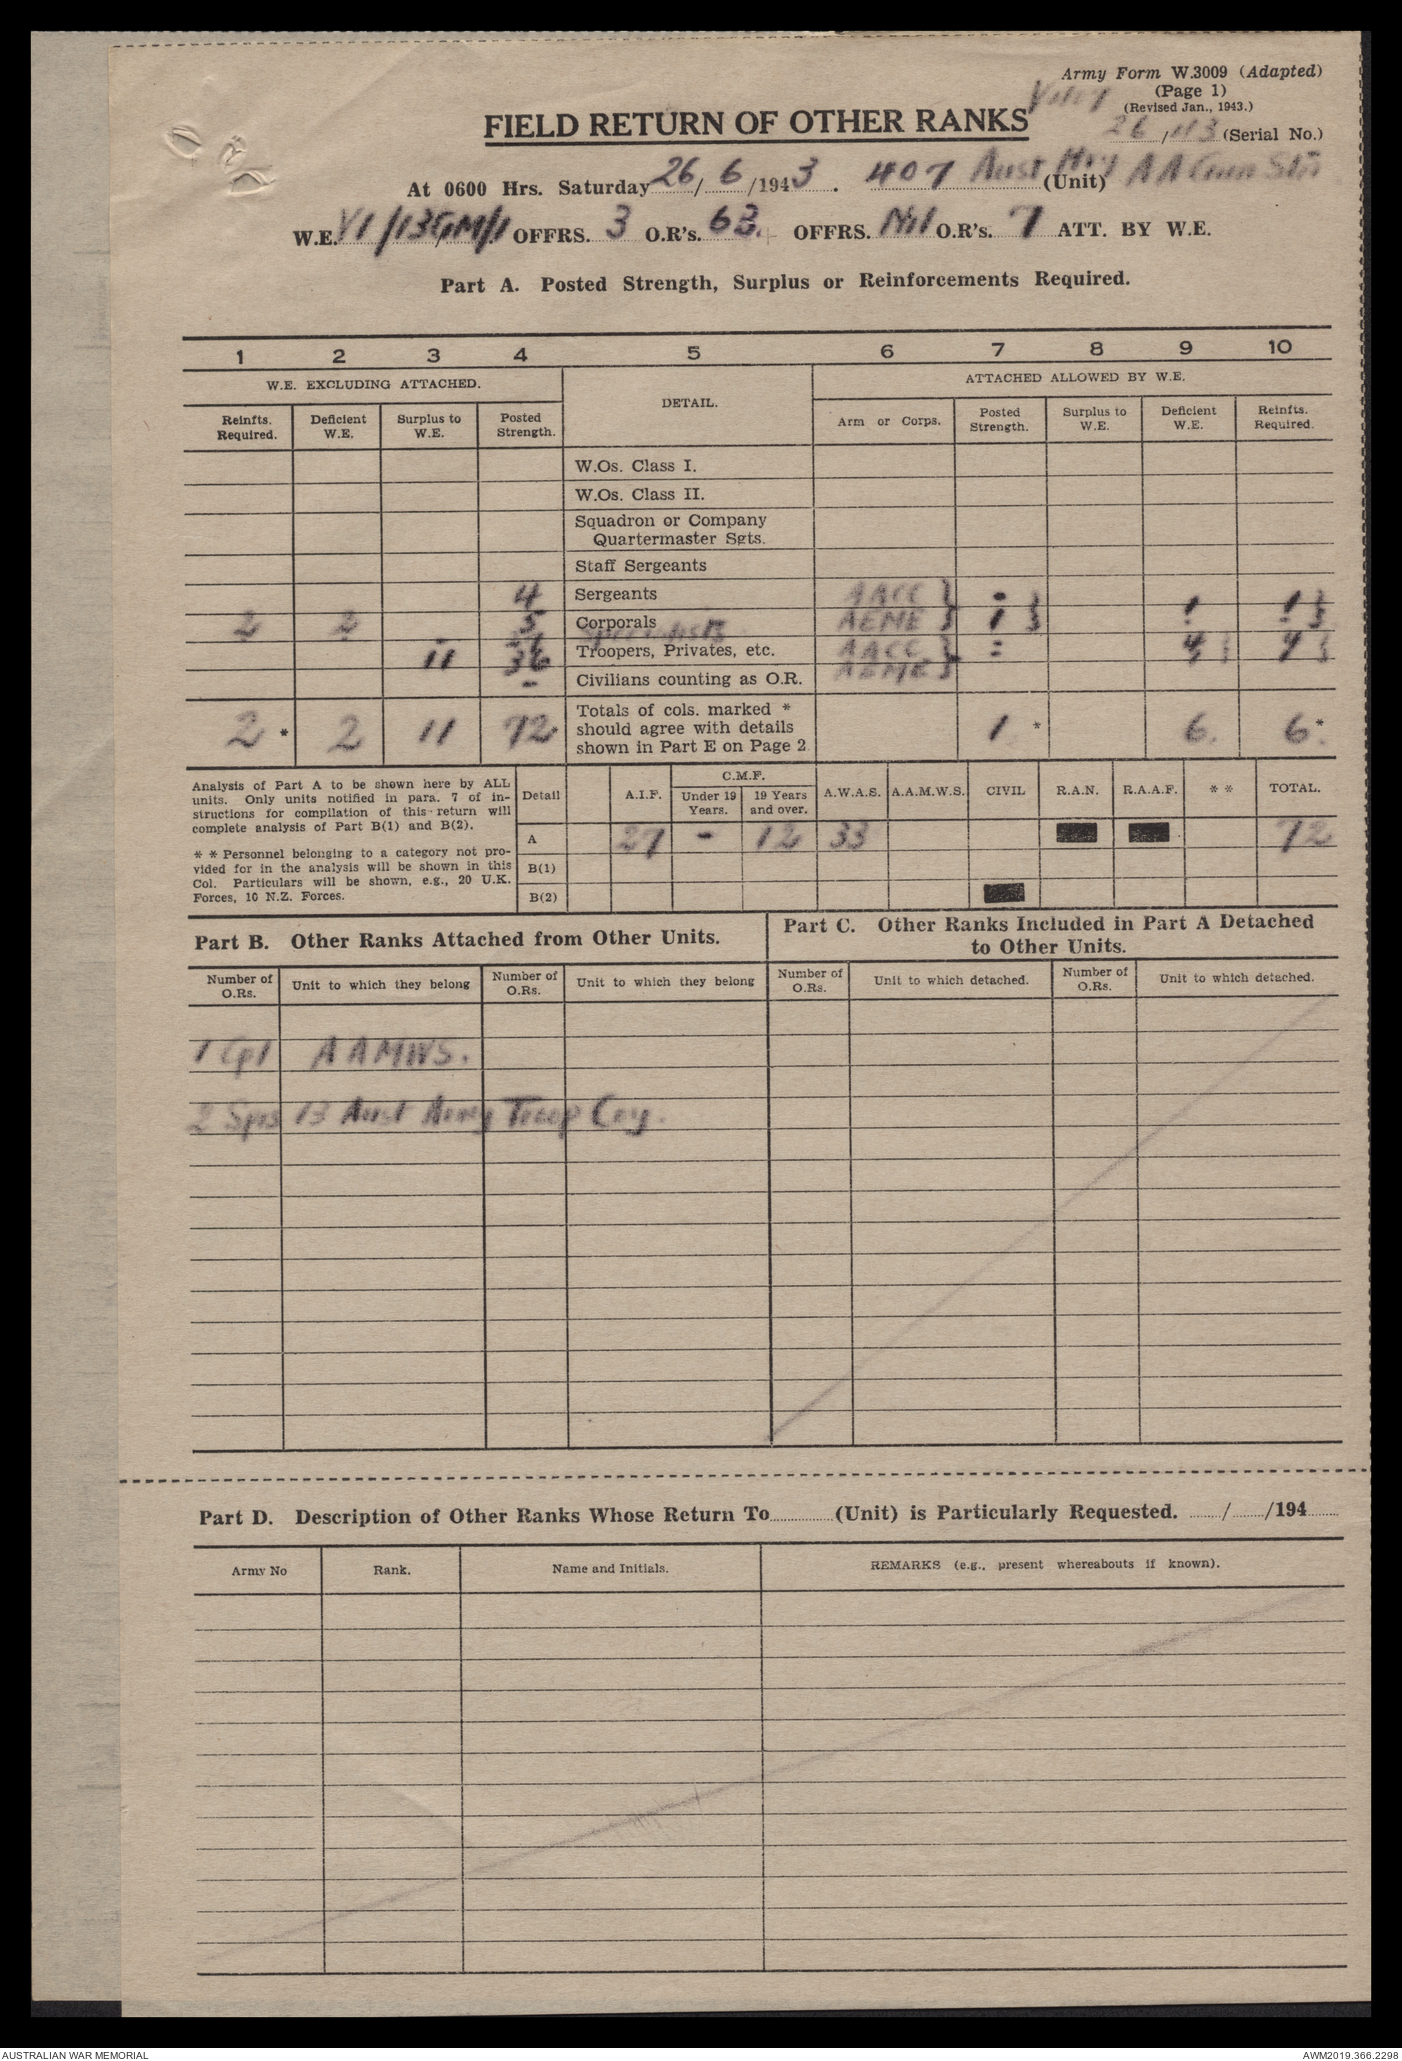 Army Form W.3009 (Adapted)
(Page 1)
(Revised Jan., 1943.)
FIELD RETURN OF OTHER RANKS
26/ (Serial No.)
At 0600 Hrs. Saturday 26/6/1943. 407 Aust Hvy (Unit) A A Gun Stn
W.E. VI/13GM/1 OFFRS. 3 O.R's. 63. OFFRS. Nil O.R's. 7 ATT. BY W.E.
Part A. Posted Strength, Surplus or Reinforcements Required.
1 2 3 4 5 6 7 8 9 10
W.E. EXCLUDING ATTACHED. DETAIL. ATTACHED ALLOWED BY W.E.
Reinfts. Required. Deficient W.E. Surplus to W.E. Posted Strength. Arm or Corps. Posted Strength. Surplus to W.E. Deficient W.E. Reinfts. Required.
W.Os. Class I.
W.Os. Class II.
Squadron or Company
Quartermaster Sgts.
Staff Sergeants
4 Sergeants AACC } -
2 2 5 Corporals AEME } 1 } 1 1 }
Specialists
11 36 Troopers, Privates, etc. AACC } -
- Civilians counting as O.R. AEME }
2 * 2 11 72 Totals of cols. marked * should agree with details shown in Part E on Page 2 1 * 6. 6. *
Analysis of Part A to be shown here by ALL
units. Only units notified in para. 7 of in-
structions for compilation of this return will
complete analysis of Part B(1) and B(2).
* * Personnel belonging to a category not pro-
vided for in the analysis will be shown in this
Col. Particulars will be shown, e.g., 20 U.K.
Forces, 10 N.Z. Forces.
Detail A.I.F. C.M.F. Under 19 Years. 19 Years and over. A.W.A.S. A.A.M.W.S. CIVIL R.A.N. R.A.A.F. * * TOTAL.
A 27 - 12 33 72
B(1)
B(2)
Part B. Other Ranks Attached from Other Units.
Part C. Other Ranks Included in Part A Detached
to Other Units.
Number of O.Rs. Unit to which they belong Number of O.Rs. Unit to which they belong Number of O.Rs. Unit to which detached. Number of O.Rs. Unit to which detached.
1 Cpl A A M W S.
2 Sprs 13 Aust Army Troop Coy.
Part D. Description of Other Ranks Whose Return To (Unit) is Particularly Requested. / /194
Army No Rank. Name and Initials. REMARKS (e.g., present whereabouts if known).
AUSTRALIAN WAR MEMORIAL
AWM2019.366.2298